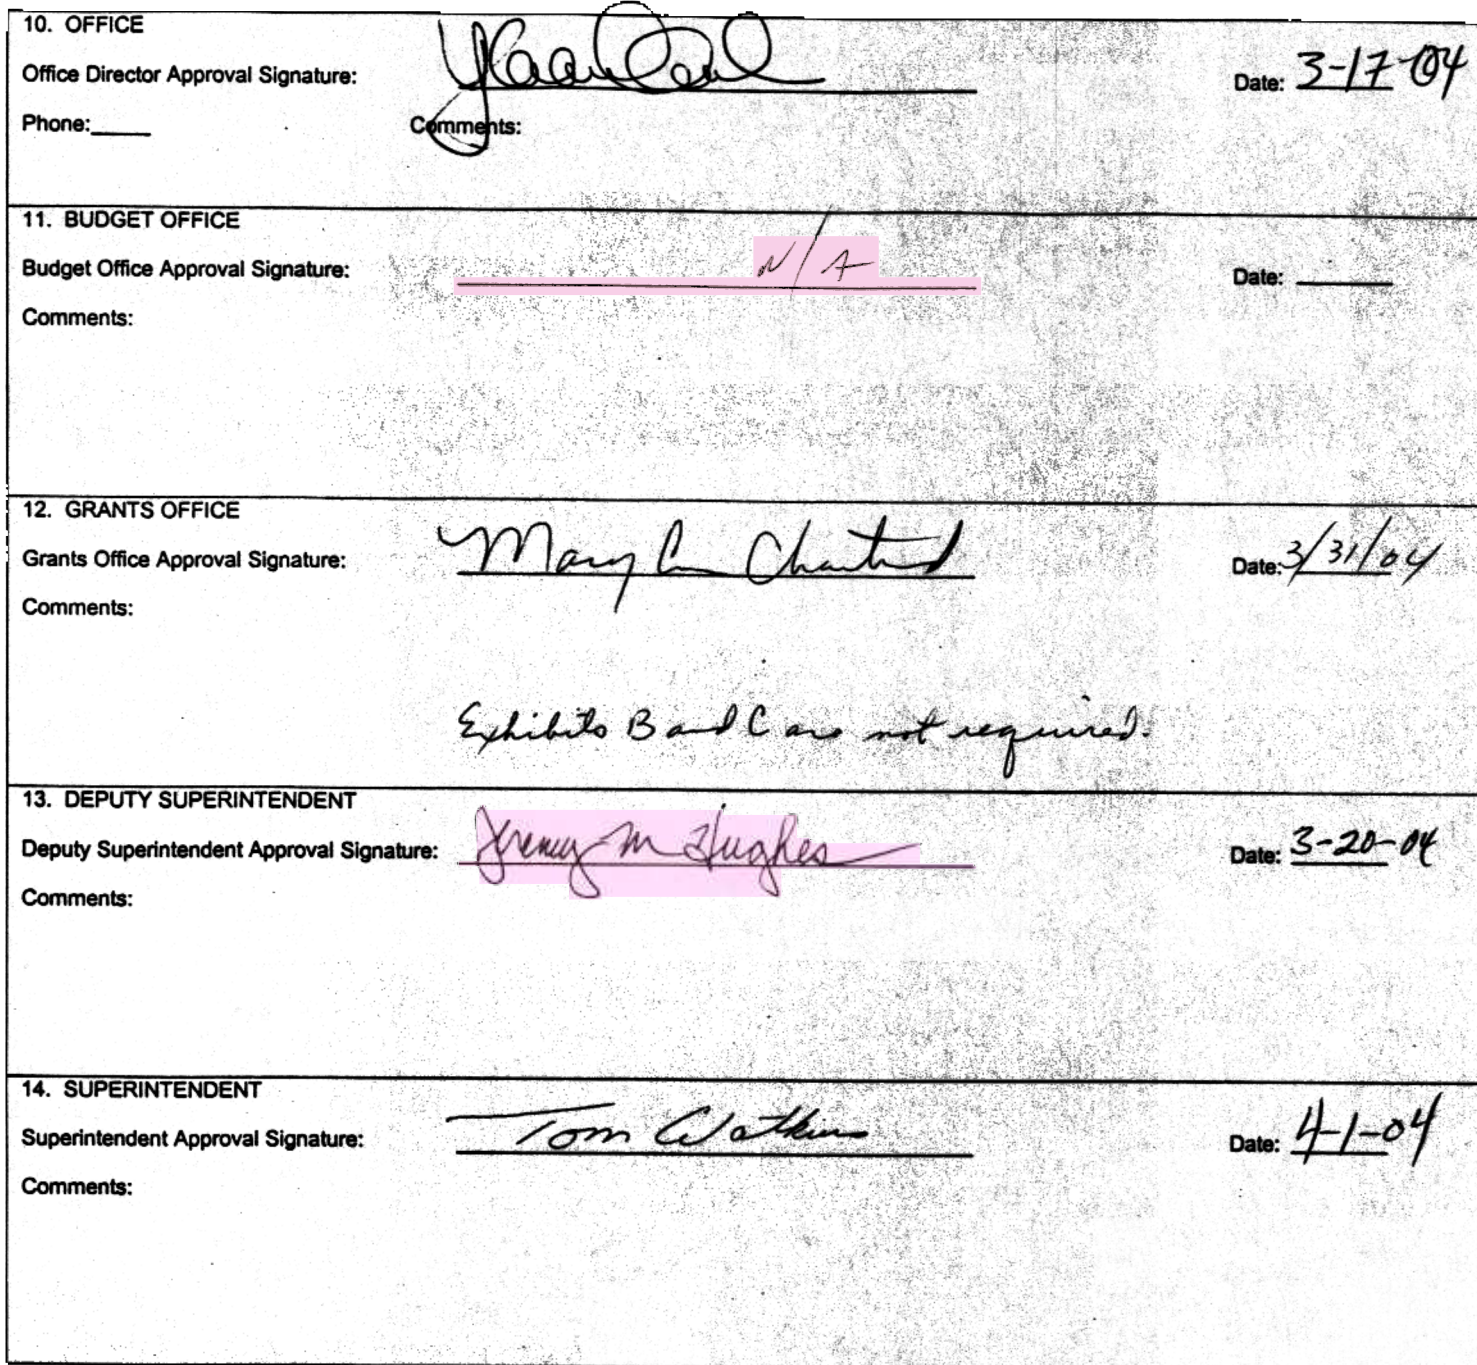 10. OFFICE
Office Director Approval Signature: Date: 3-17-04
Phone:____ Comments:
11. BUDGET OFFICE
Budget Office Approval Signature: N/A Date: ____
Comments:
12. GRANTS OFFICE
Grants Office Approval Signature: Mary Date: 3/31/04
Comments:
Exhibits B and C are not required.
13. DEPUTY SUPERINTENDENT
Deputy Superintendent Approval Signature: Jeremy M Hughes Date: 3-20-04
Comments:
14. SUPERINTENDENT
Superintendent Approval Signature: Tom Watkins Date: 4-1-04
Comments: